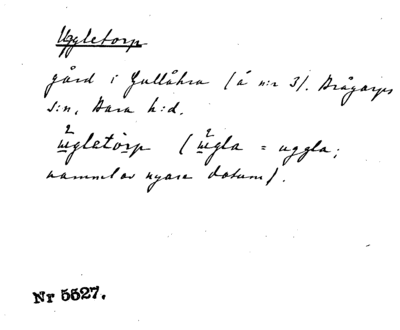 Uggletorp
gård i Gullåkra (å n:r 3). Brågarps
s:n, Bara h:d.
ugletorp (ugla = uggla;
namnet av nyare datum).
Nr 5527.